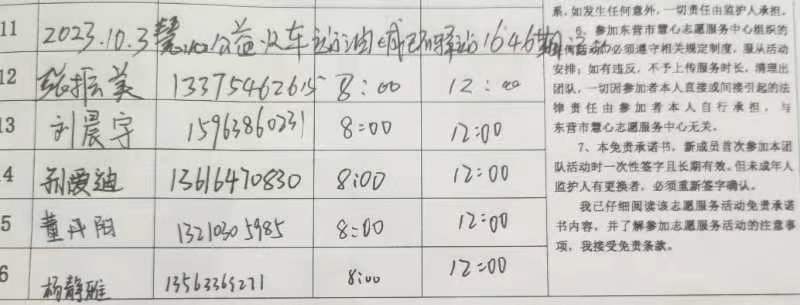 11 2023.10.3慧心公益火车站 1646期
12 张振美 13375462615 8:00 12:00
13 刘晨宇 15963860231 8:00 12:00
4 孙爱迪 13616470830 8:00 12:00
5 董丹阳 13210305985 8:00 12:00
6 杨静雅 13563369271 8:00 12:00
系,如发生任何意外,一切责任由监护人承担。
6、参加东营市慧心志愿服务中心组织的
任何活动必须遵守相关规定制度,服从活动
安排;如有违反,不予上传服务时长,清理出
团队,一切因参加者本人直接或间接引起的法
律责任由参加者本人自行承担,与
东营市慧心志愿服务中心无关。
7、本免责承诺书,新成员首次参加本团
队活动时一次性签字且长期有效。但未成年人
监护人有更换者,必须重新签字确认。
我已仔细阅读该志愿服务活动免责承诺
书内容,并了解参加志愿服务活动的注意事
项,我接受免责条款。